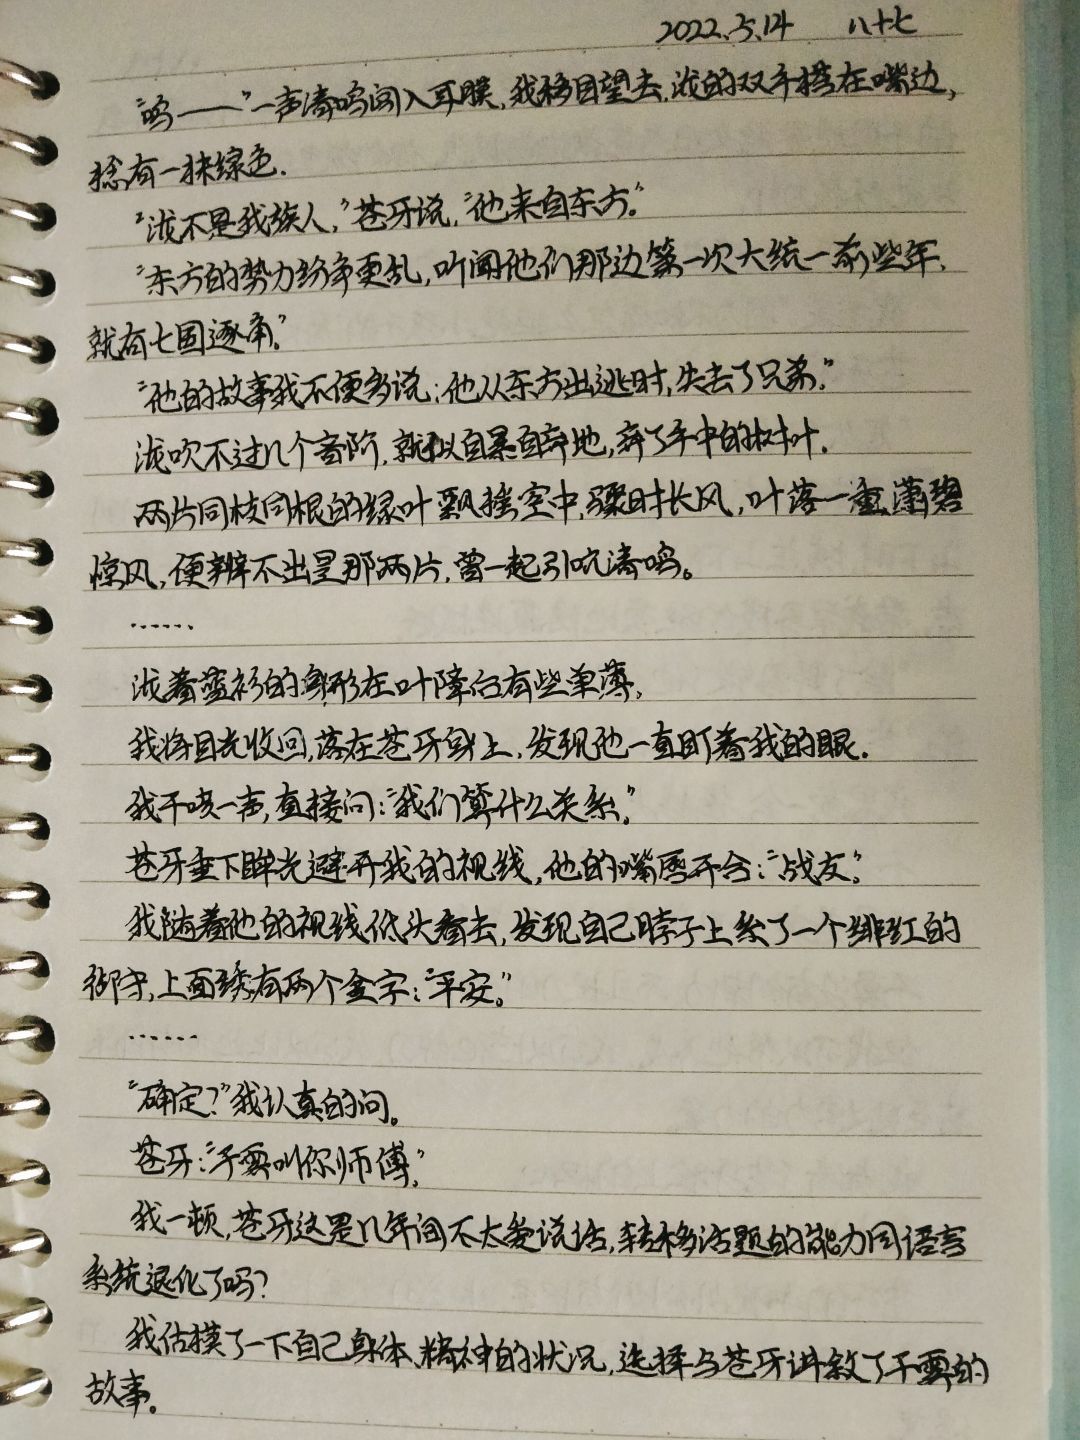 2022.5.14 八十七
“鸣——”一声清鸣闯入耳膜,我移目望去,泷的双手搭在嘴边,
捻有一抹绿色.
“泷不是我族人,”苍牙说,“他来自东方。”
“东方的势力纷争更乱,听闻他们那边第一次大统一前些年,
就有七国逐角。”
“他的故事我不便多说;他从东方出逃时,失去了兄弟.”
泷吹不过几个音阶,就似自暴自弃地,弃了手中的树叶.
两片同枝同根的绿叶飘摇空中,骤时长风,叶落一重,薄碧
惊风,便辨不出是那两片,曾一起引吭清鸣。
……
泷着蓝衫的身形在叶降后有些单薄,
我将目光收回,落在苍牙身上,发现他一直盯着我的眼.
我干咳一声,直接问:“我们算什么关系。”
苍牙垂下眸光避开我的视线,他的嘴唇开合:“战友。”
我随着他的视线低头看去,发现自己脖子上系了一个绯红的
御守,上面绣有两个金字:“平安。”
……
“确定?”我认真的问。
苍牙:“子雾叫你师傅.”
我一顿,苍牙这是几年间不太爱说话,转移话题的能力同语言
系统退化了吗?
我估摸了一下自己身体、精神的状况,选择与苍牙讲叙了子雾的
故事。